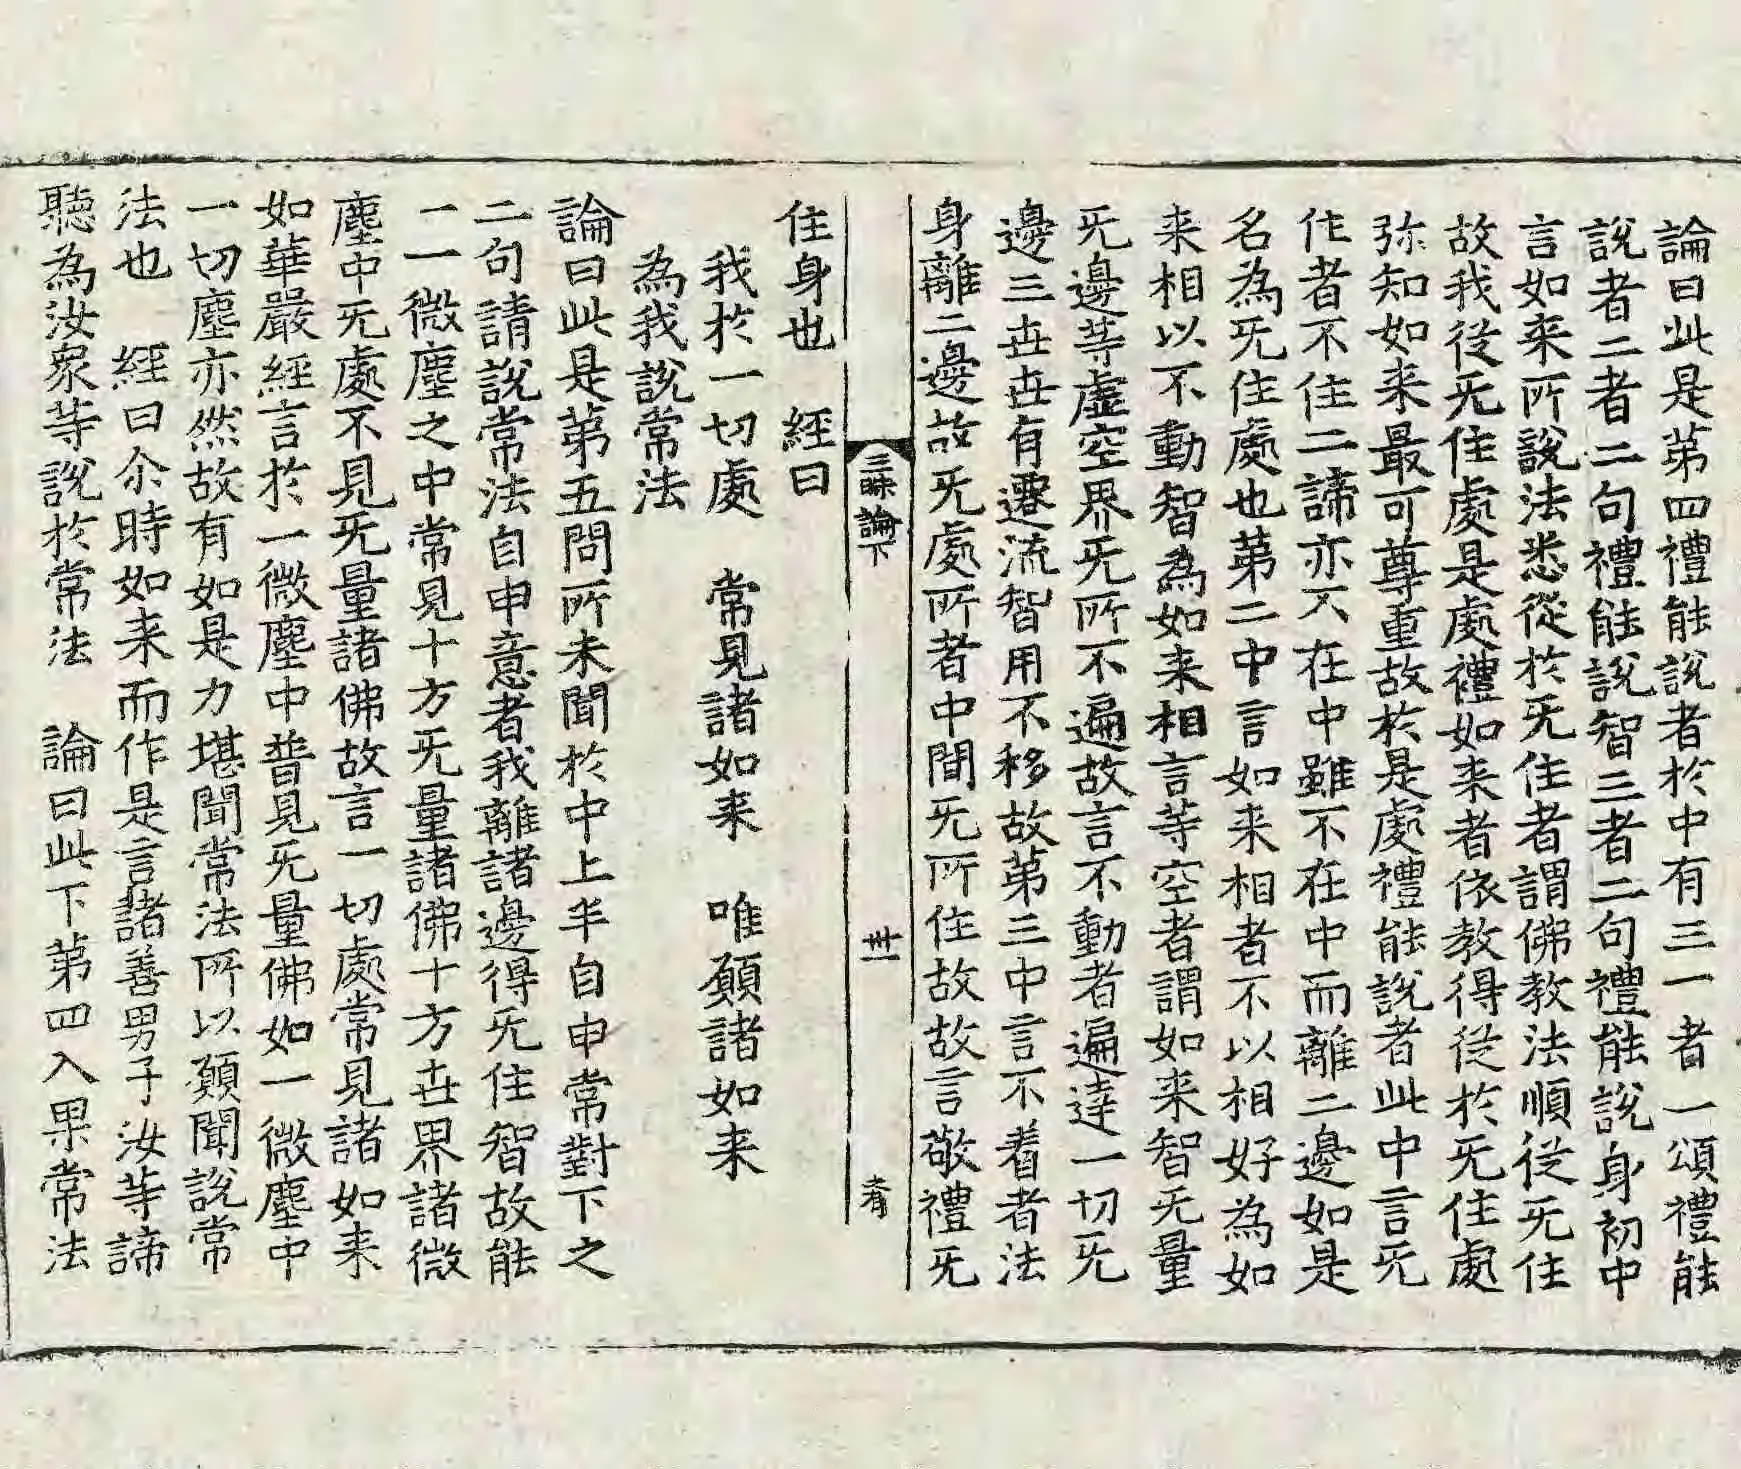 論曰此是第四禮能說者於中有三一者一頌禮能
說者二者二句禮能說智三者二句禮能說身初中
言如来所說法悉從於旡住者謂佛教法順従旡住
故我従旡住處是處禮如来者依教得従於旡住處
弥知如来最可尊重故於是處禮能說者此中言旡
住者不住二諦亦不在中雖不在中而離二邊如是
名為旡住處也第二中言如来相者不以相好為如
来相以不動智為如来相言等空者謂如来智旡量
旡邊等虛空界旡所不遍故言不動者遍達一切旡
邊三世世有遷流智用不移故第三中言不着者法
身離二邊故旡處所者中間旡所住故故言敬禮旡
三昧論下 丗一
住身也 經曰
我於一切處 常見諸如来 唯願諸如来
為我說常法
論曰此是第五問所未聞於中上半自申常對下之
二句請說常法自申意者我離諸邊得旡住智故能
一一微塵之中常見十方旡量諸佛十方世界諸微
塵中旡處不見旡量諸佛故言一切處常見諸如来
如華嚴經言於一微塵中普見旡量佛如一微塵中
一切塵亦然故有如是力堪聞常法所以願聞說常
法也 經曰尒時如来而作是言諸善男子汝等諦
聽為汝衆等說於常法 論曰此下第四入果常法